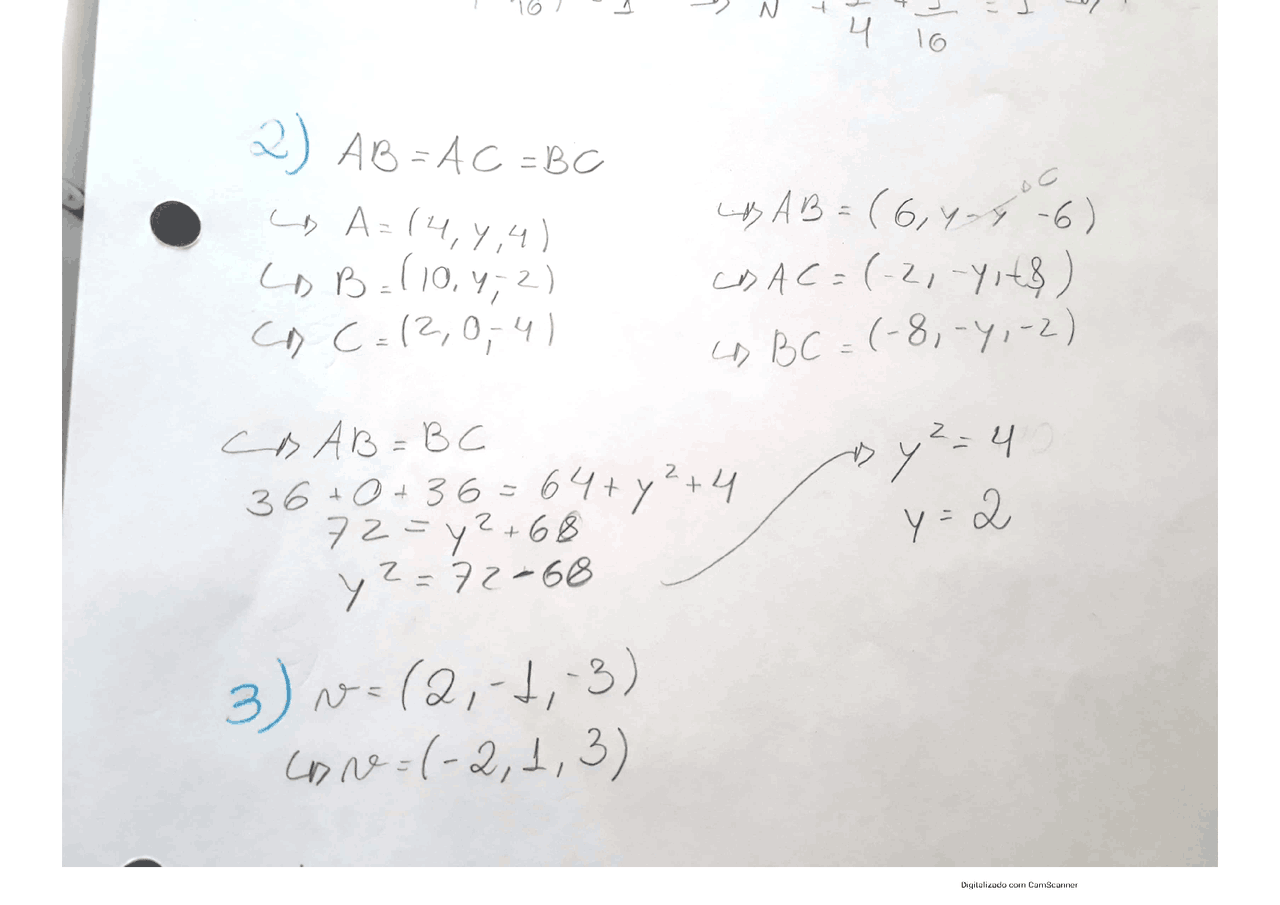 16) 1 → N + 1/4 + 1/16 = 1 →
2) AB = AC = BC
↪ A = (4, y, 4)
↪ B = (10, y, -2)
↪ C = (2, 0, -4)
↪ AB = (6, y - y 0 -6)
↪ AC = (-2, -y, -8)
↪ BC = (-8, -y, -2)
↪ AB = BC
36 + 0 + 36 = 64 + y² + 4
72 = y² + 68
y² = 72 - 68
→ y² = 4
y = 2
3) v = (2, -1, -3)
↪ v = (-2, 1, 3)
Digitalizado com CamScanner